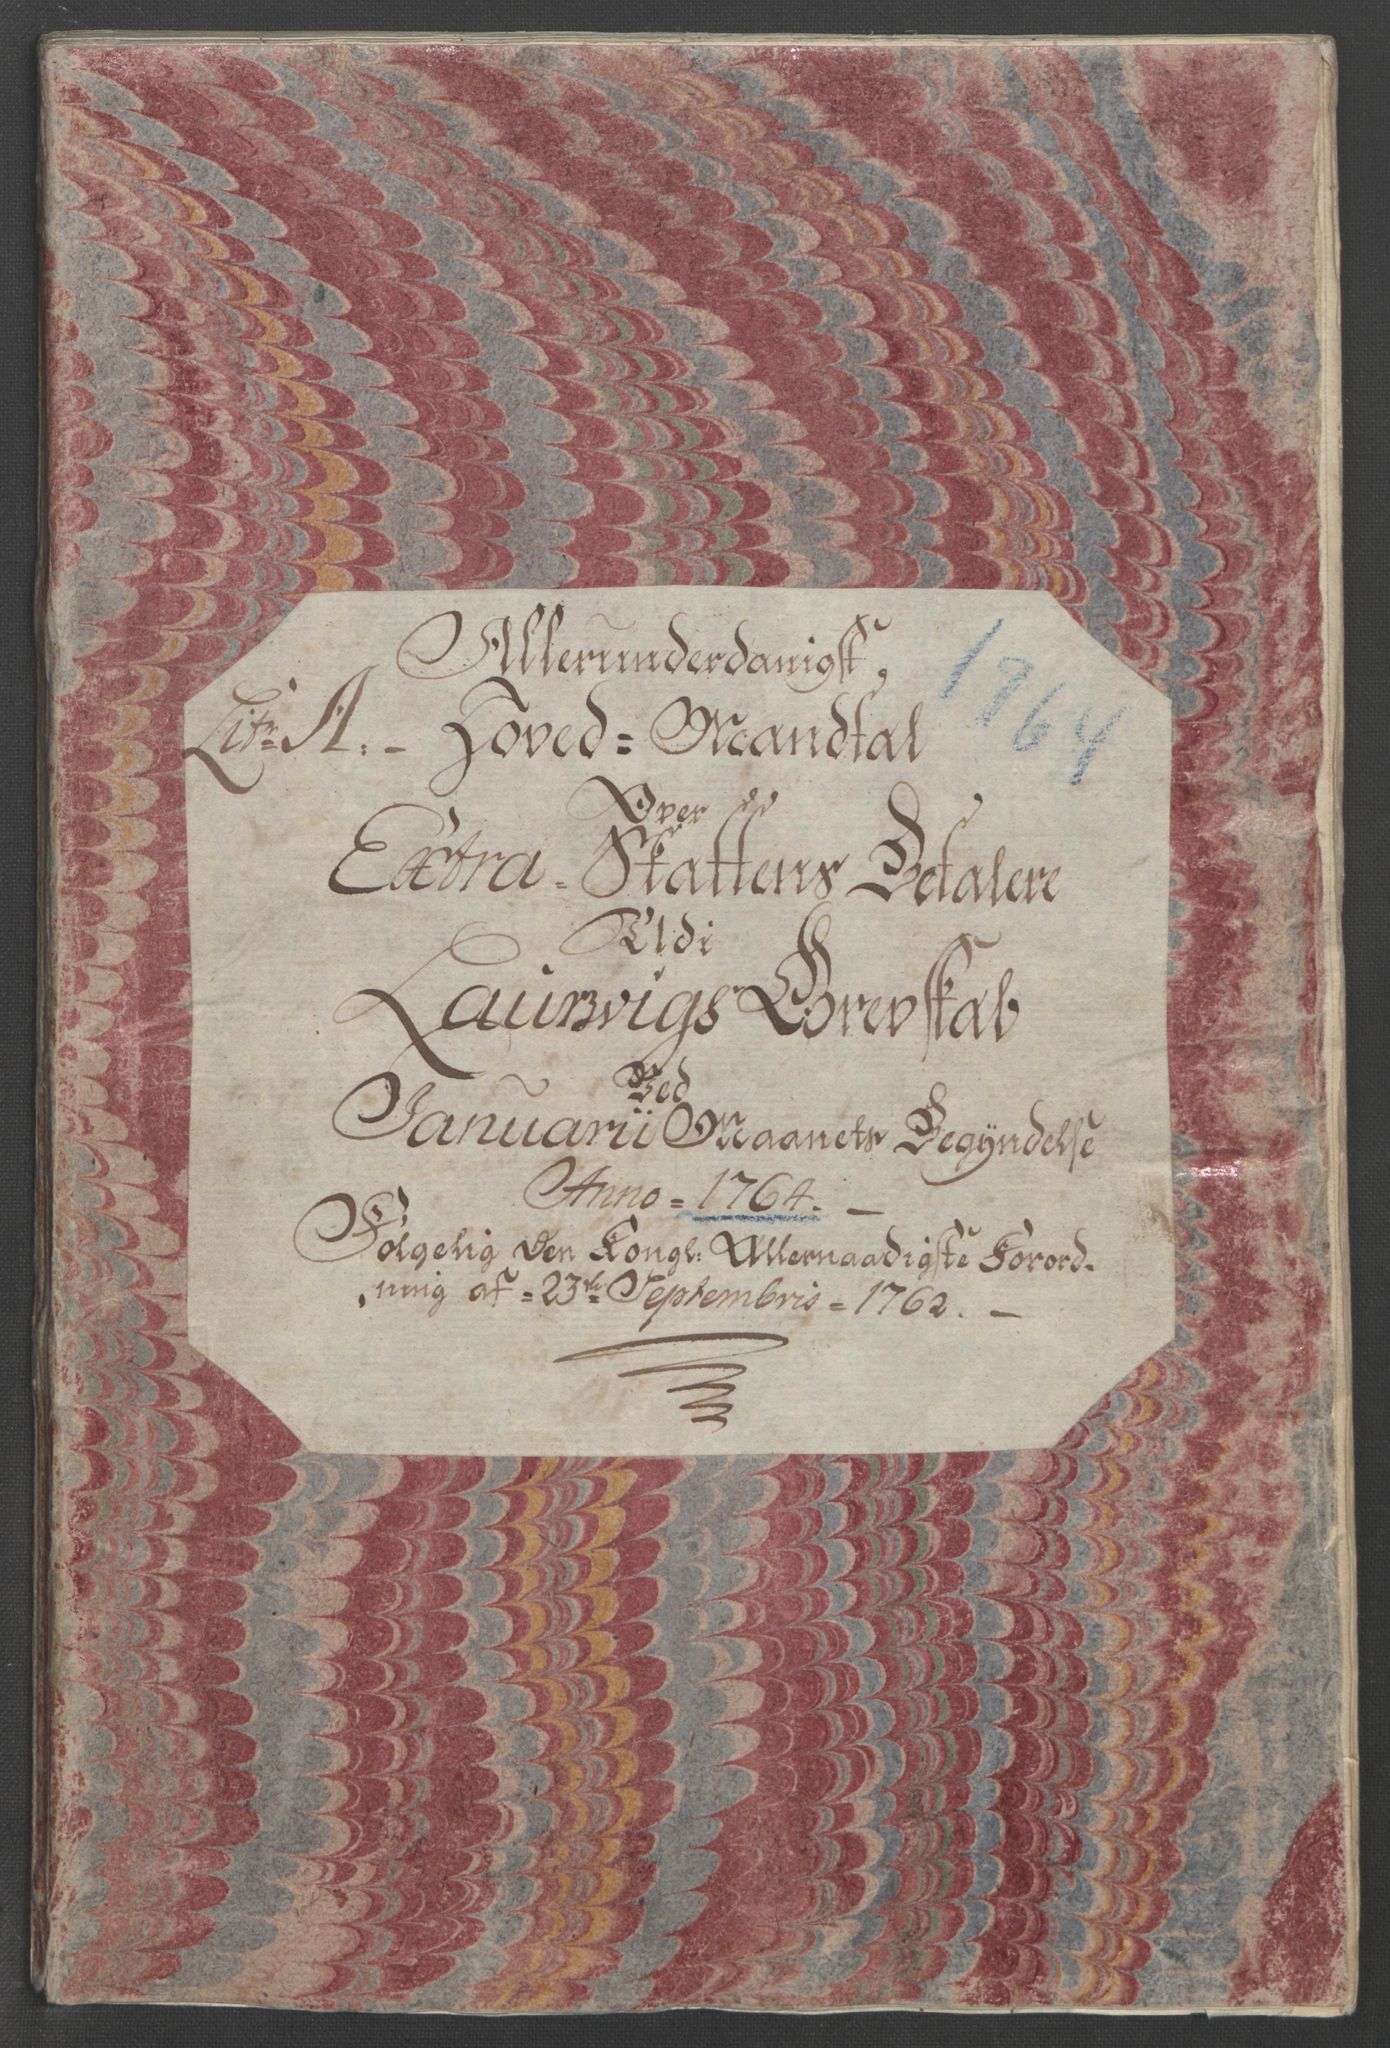 Allerunderdanigst,
1764
Litr: A. - Hoved = Mandtal
Over
Extra = Skattens Betalere
Udi
Laurvigs Grevskab
Ved
Januarii Maanets Begÿndelse
Anno = 1764. -
Følgelig Den Kongl: Allernaadigste Forord-
ning af = 23de Septembris = 1762. -